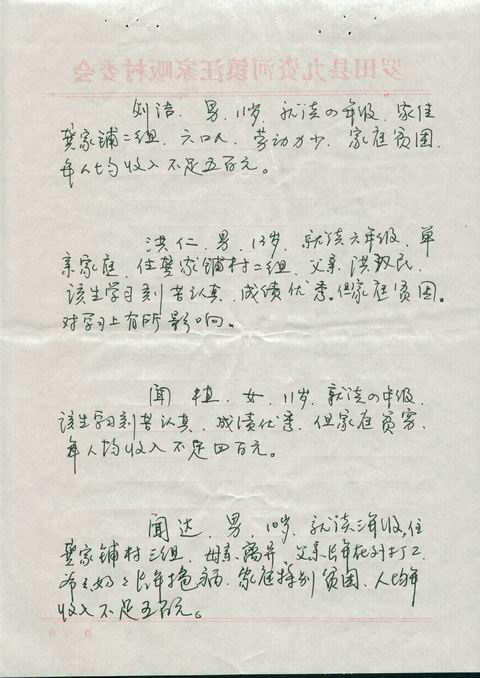 罗田县九资河镇汪家畈村委会
刘浩、男、11岁、就读四年级、家住
龚家铺二组、六口人、劳动力少、家庭贫困、
年人均收入不足五百元。
洪仁、男、13岁、就读六年级、单
亲家庭、住龚家铺村二组、父亲洪民、
该生学习刻苦认真、成绩优秀。但家庭贫困。
对学习上有所影响。
闻植、女、11岁、就读四年级、
该生学习刻苦认真、成绩优秀、但家庭贫寒、
年人均收入不足四百元。
闻达、男、10岁、就读三年级,住
龚家铺村三组、母亲离异、父亲长年在外打工
爷爷奶奶长年抱病、家庭特别贫困、人均年
收入不足五百元。
月 日